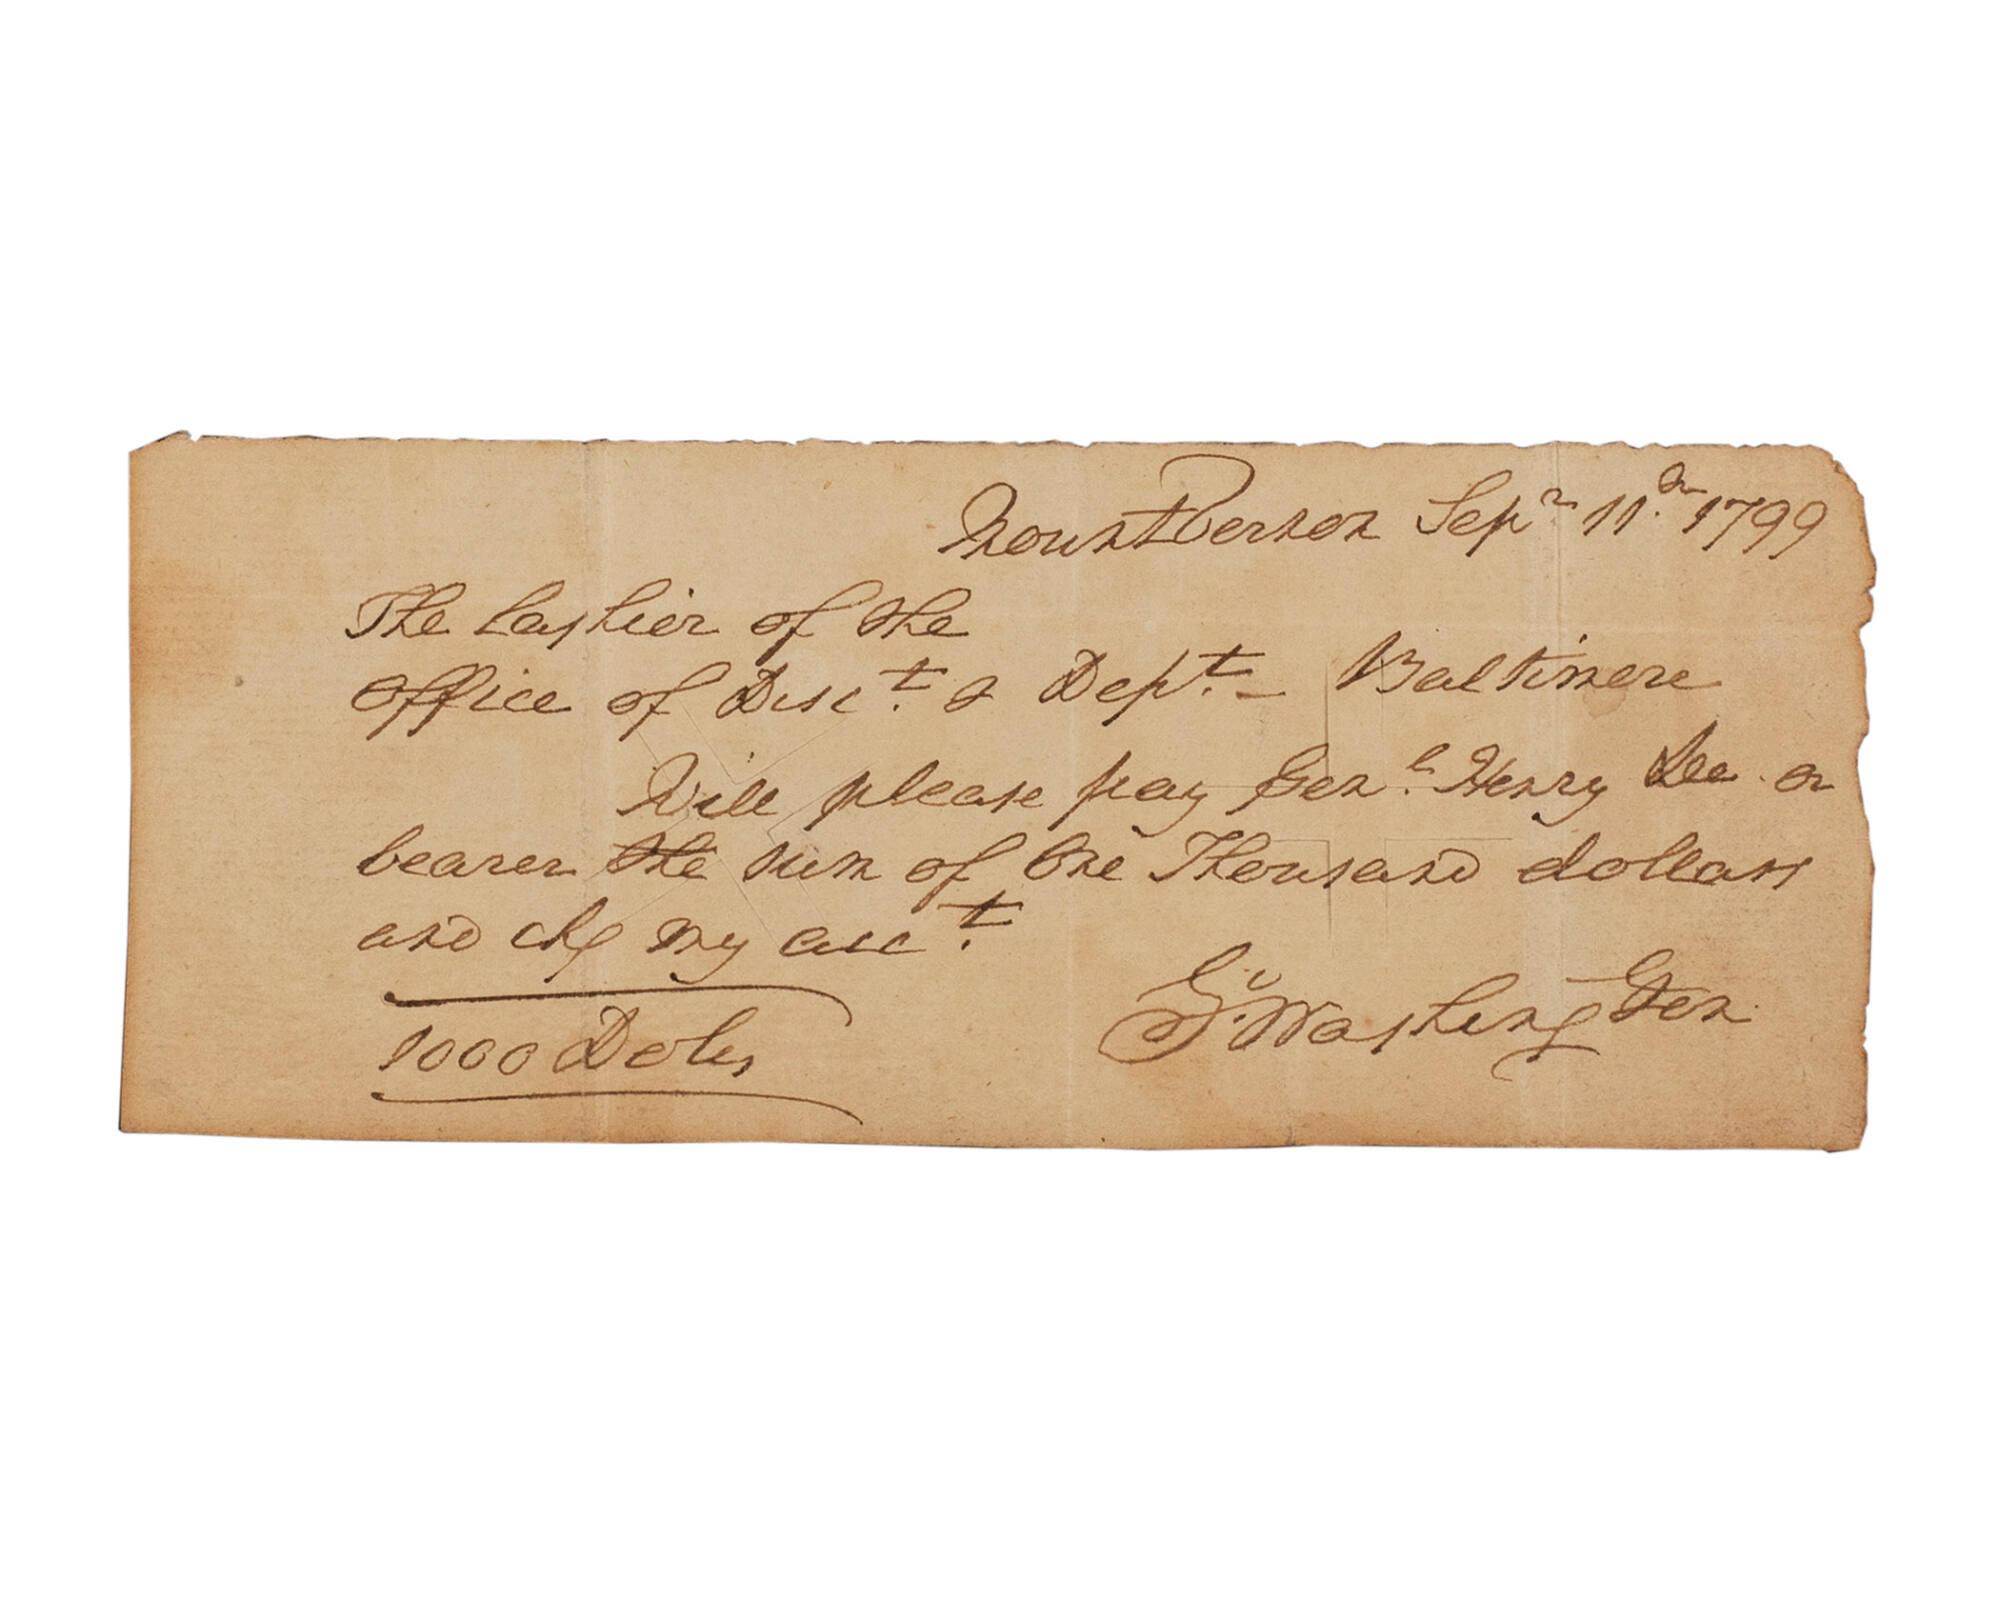 Mount Vernon Sepr 11th 1799
The Cashier of the
Office of Disct. & Dept. – Baltimore
Will please pay Genl. Henry Lee or
bearer the sum of One Thousand dollars
and chg my acct.
Go. Washington
1000 Dolrs